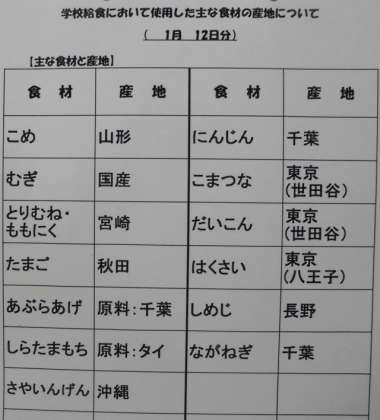 学校給食において使用した主な食材の産地について
( 1月 12日分)
【主な食材と産地】
食 材 産 地 食 材 産 地
こめ 山形 にんじん 千葉
むぎ 国産 こまつな 東京
(世田谷)
とりむね・
ももにく 宮崎 だいこん 東京
(世田谷)
たまご 秋田 はくさい 東京
(八王子)
あぶらあげ 原料:千葉 しめじ 長野
しらたまもち 原料:タイ ながねぎ 千葉
さやいんげん 沖縄